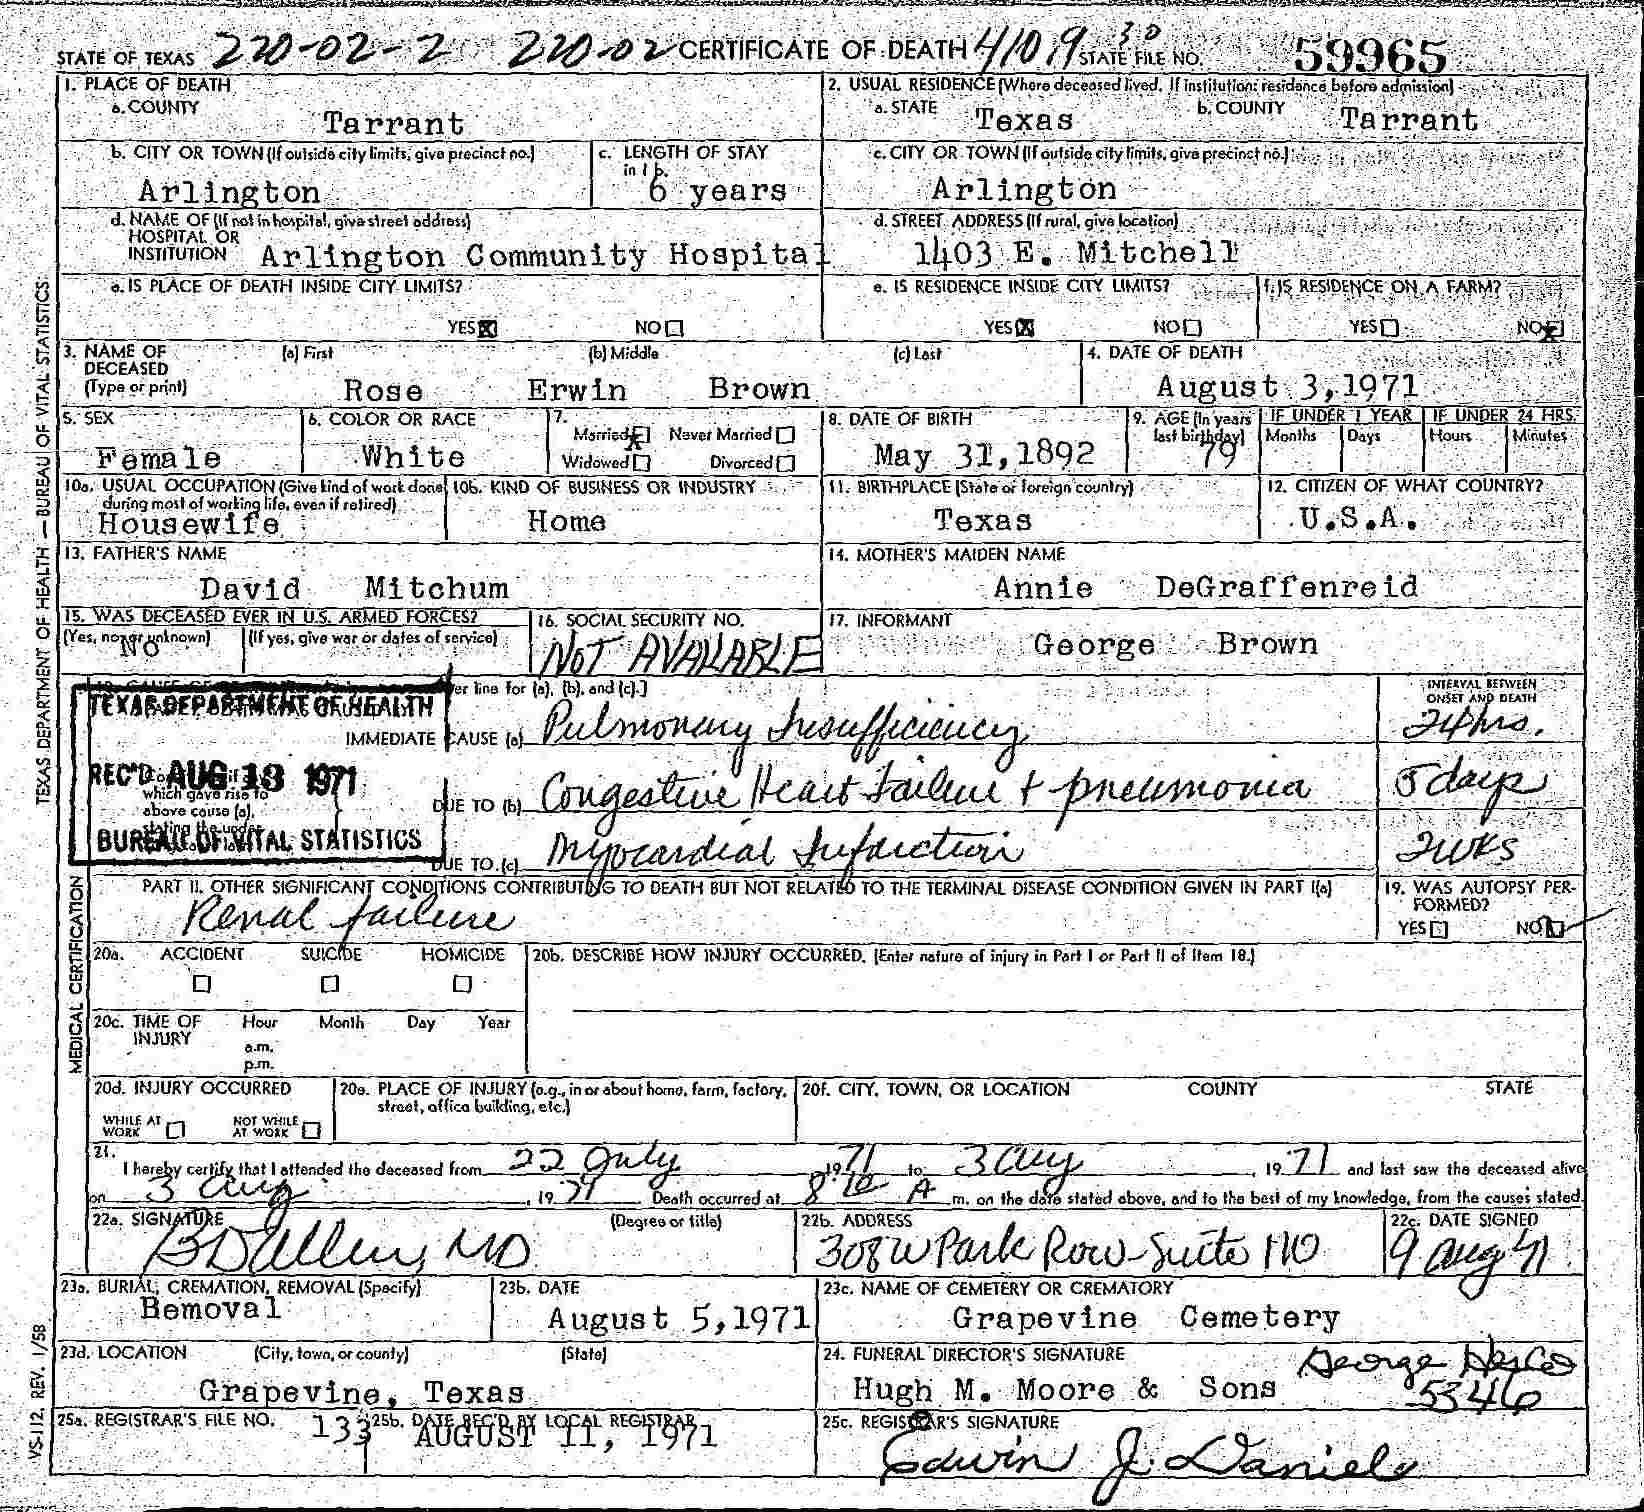 STATE OF TEXAS 220-02-2 220-02 CERTIFICATE OF DEATH 4109 30 STATE FILE NO. 59965
1. PLACE OF DEATH
a. COUNTY
Tarrant
2. USUAL RESIDENCE (Where deceased lived. If institution: residence before admission)
a. STATE Texas b. COUNTY Tarrant
b. CITY OR TOWN (If outside city limits, give precinct no.)
Arlington
c. LENGTH OF STAY
in 1 b.
6 years
c. CITY OR TOWN (If outside city limits, give precinct no.)
Arlington
d. NAME OF (If not in hospital, give street address)
HOSPITAL OR
INSTITUTION Arlington Community Hospital
d. STREET ADDRESS (If rural, give location)
1403 E. Mitchell
e. IS PLACE OF DEATH INSIDE CITY LIMITS?
YES NO
e. IS RESIDENCE INSIDE CITY LIMITS?
YES NO
f. IS RESIDENCE ON A FARM?
YES NO
3. NAME OF (a) First (b) Middle (c) Last
DECEASED
(Type or print) Rose Erwin Brown
4. DATE OF DEATH
August 3,1971
5. SEX
Female
6. COLOR OR RACE
White
7.
Married Never Married
Widowed Divorced
8. DATE OF BIRTH
May 31,1892
9. AGE (In years
last birthday)
79
IF UNDER 1 YEAR
Months Days
IF UNDER 24 HRS.
Hours Minutes
10a. USUAL OCCUPATION (Give kind of work done
during most of working life, even if retired)
Housewife
10b. KIND OF BUSINESS OR INDUSTRY
Home
11. BIRTHPLACE (State or foreign country)
Texas
12. CITIZEN OF WHAT COUNTRY?
U.S.A.
13. FATHER'S NAME
David Mitchum
14. MOTHER'S MAIDEN NAME
Annie DeGraffenreid
15. WAS DECEASED EVER IN U.S. ARMED FORCES?
(Yes, no, or unknown) (If yes, give war or dates of service)
No
16. SOCIAL SECURITY NO.
NOT AVAILABLE
17. INFORMANT
George Brown
er line for (a), (b), and (c).]
INTERVAL BETWEEN
ONSET AND DEATH
TEXAS DEPARTMENT OF HEALTH
REC'D AUG 13 1971
BUREAU OF VITAL STATISTICS
IMMEDIATE CAUSE (a) Pulmonary Insufficiency 24hrs.
which gave rise to
above cause (a),
stating the under
DUE TO (b) Congestive Heart Failure + pneumonia 5 days
DUE TO (c) Myocardial Infarction 2 wks
PART II. OTHER SIGNIFICANT CONDITIONS CONTRIBUTING TO DEATH BUT NOT RELATED TO THE TERMINAL DISEASE CONDITION GIVEN IN PART I(a)
Renal failure
19. WAS AUTOPSY PER-
FORMED?
YES NO
20a. ACCIDENT SUICIDE HOMICIDE
20b. DESCRIBE HOW INJURY OCCURRED. (Enter nature of injury in Part I or Part II of Item 18.)
20c. TIME OF Hour Month Day Year
INJURY
a.m.
p.m.
20d. INJURY OCCURRED
WHILE AT WORK NOT WHILE AT WORK
20e. PLACE OF INJURY (e.g., in or about home, farm, factory,
street, office building, etc.)
20f. CITY, TOWN, OR LOCATION COUNTY STATE
21.
I hereby certify that I attended the deceased from 22 July 1971 to 3 Aug, 1971 and last saw the deceased alive
on 3 Aug, 1971 Death occurred at 8:10 A m. on the date stated above, and to the best of my knowledge, from the causes stated.
22a. SIGNATURE (Degree or title)
BD Allen, MD
22b. ADDRESS
308 W Park Row-Suite 110
22c. DATE SIGNED
9 Aug 71
23a. BURIAL, CREMATION, REMOVAL (Specify)
Bemoval
23b. DATE
August 5,1971
23c. NAME OF CEMETERY OR CREMATORY
Grapevine Cemetery
23d. LOCATION (City, town, or county) (State)
Grapevine, Texas
24. FUNERAL DIRECTOR'S SIGNATURE
Hugh M. Moore & Sons George
5346
25a. REGISTRAR'S FILE NO. 133
25b. DATE REC'D BY LOCAL REGISTRAR
AUGUST 11, 1971
25c. REGISTRAR'S SIGNATURE
Edwin J. Daniels
TEXAS DEPARTMENT OF HEALTH — BUREAU OF VITAL STATISTICS
MEDICAL CERTIFICATION
VS-112, REV. 1/58